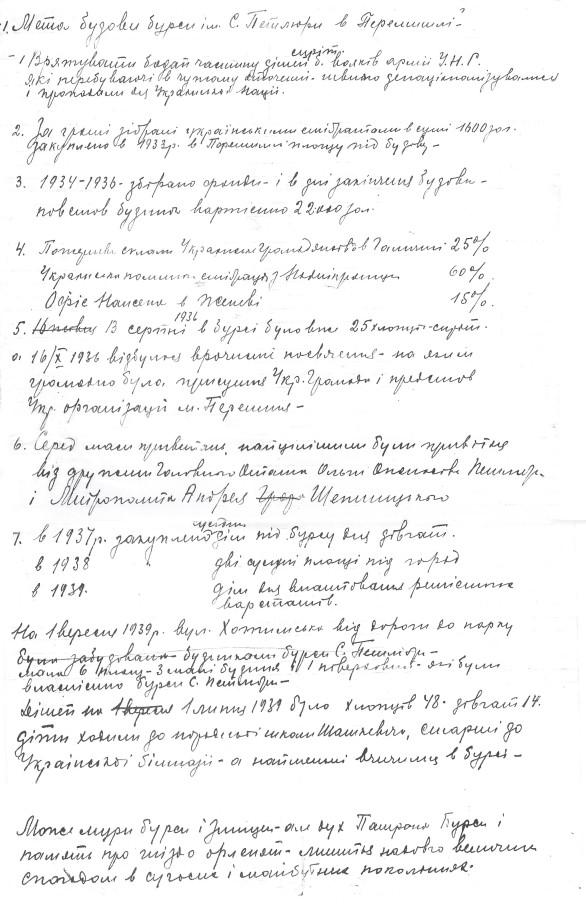 1. Мета будови бурси ім. С. Петлюри в Перемишлі
- 1 Врятувати бодай частину дітей сиріт б. вояків армії У.Н.Р.
які перебуваючі в чужому оточенні - швидко денаціоналізувалися
і пропадали для Української Нації.
2. За гроші зібрані українськими емігрантами в сумі 1600 зол.
закуплено в 1933 р. в Перемишлі площу під будову -
3. 1934-1936 - зібрано фонди - і в дні закінчення будови -
повстав будинок вартістю 22000 зол.
4. Пожертви склали Українське Громадянство в Галичині 25%
Українська еміграція з Наддніпрянщини 60%
Офіс Нансена в Женеві 15%.
5. В серпні 1936 в бурсі було вже 25 хлопців - сиріт.
а 16/X 1936 відбулося врочисте посвячення - на якім
громадно була присутня Укр. Громада і представ
Укр. організацій м. Перемишля -
6. Серед маси привітань, найціннішими були привітання
від дружини Головного Отамана Ольги Петлюр.
і Митрополита Андрея Шептицького
7. в 1937 р. закуплено сусідній дім під бурсу для дівчат.
в 1938 " дві сусідні площі під город
в 1939. " дім для влаштовання ремісничих
варстатів.
На 1 вересня 1939 р. вул. Хотимська від дороги до парку
була забудована будинками бурси С. Петлюри -
мала 6 площ - 3 малі будинки і 1 поверховий - які були
власністю бурси С. Петлюри -
Дітей на 1 липня 1939 було хлопців 48 - дівчат 14.
діти ходили до народної школи Шашкевича, старші до
Української гімназії - а найменші вчились в бурсі -
Може мури бурси і знищені - але дух Патрона Бурси і
память про гніздо орленят - лишиться назавжди величним
спогадом в сучасних і майбутніх поколіннях.